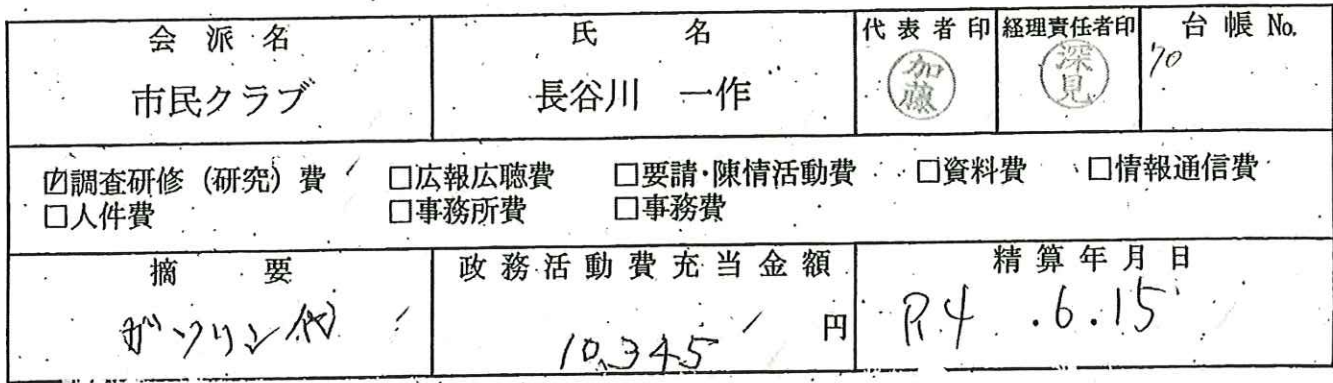 会派名 氏名 代表者印 経理責任者印 台帳 No.
市民クラブ 長谷川 一作 加藤 深見 70
☑調査研修(研究)費 □広報広聴費 □要請・陳情活動費 □資料費 □情報通信費
□人件費 □事務所費 □事務費
摘要 政務活動費充当金額 精算年月日
ガソリン代 10,345 円 R4.6.15